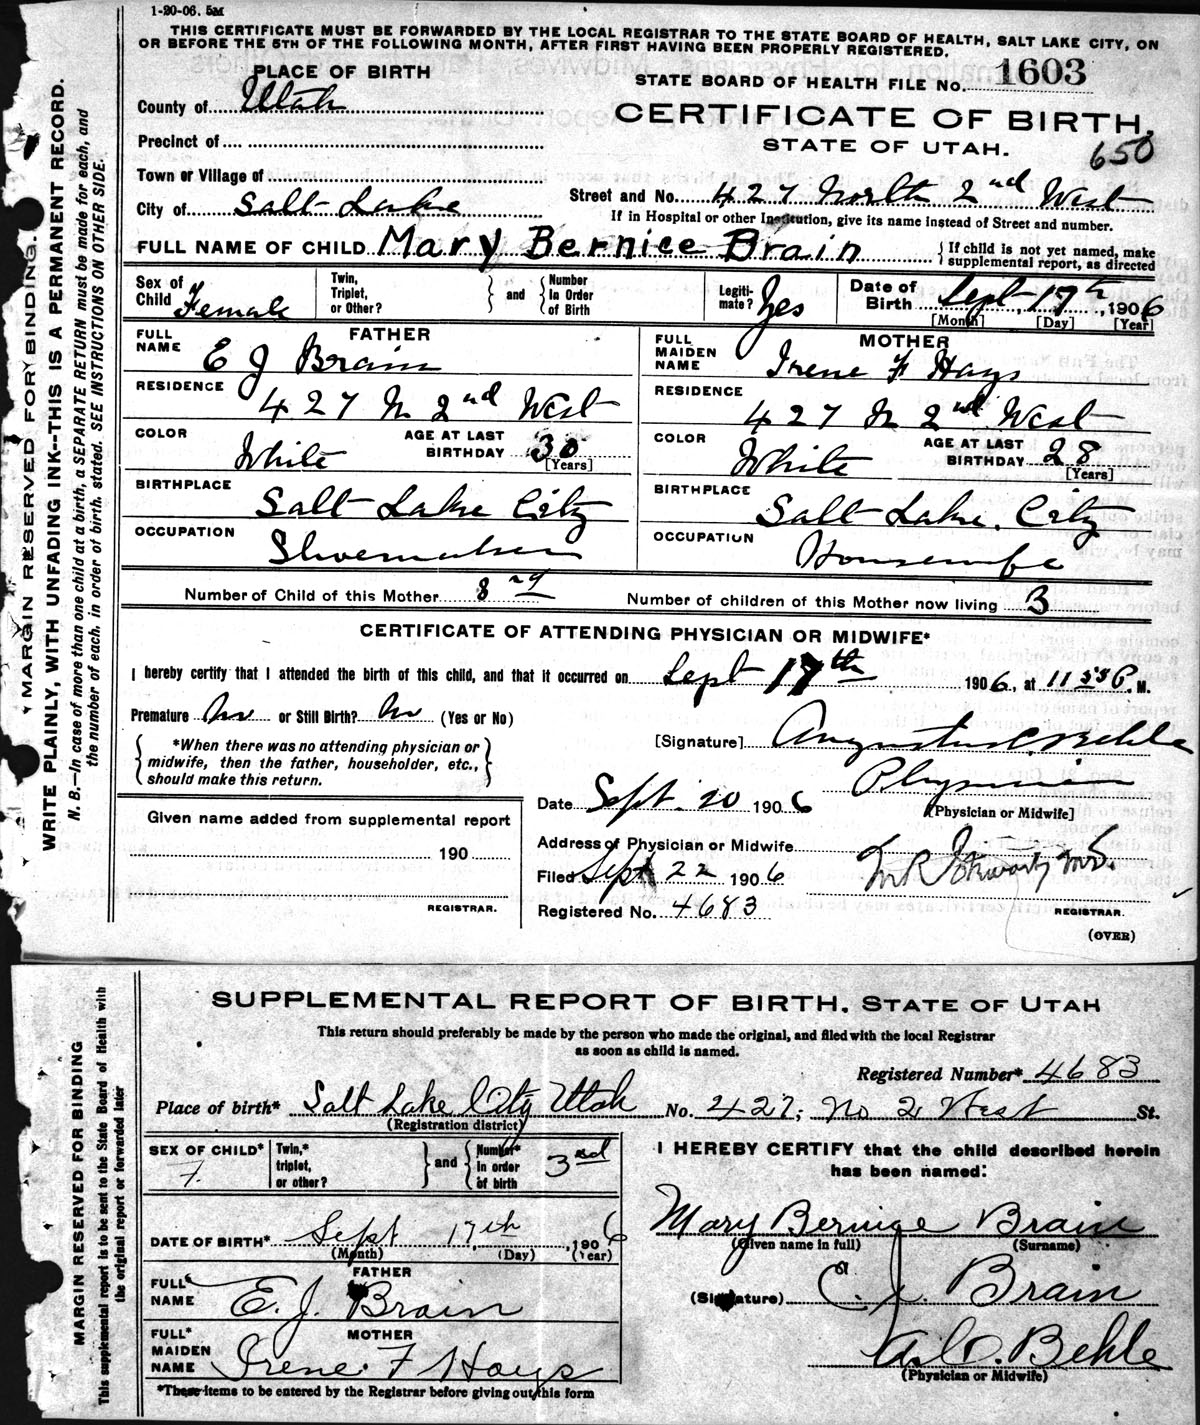 1-20-06. 5M
THIS CERTIFICATE MUST BE FORWARDED BY THE LOCAL REGISTRAR TO THE STATE BOARD OF HEALTH, SALT LAKE CITY, ON
OR BEFORE THE 5TH OF THE FOLLOWING MONTH, AFTER FIRST HAVING BEEN PROPERLY REGISTERED.
PLACE OF BIRTH
STATE BOARD OF HEALTH FILE No. 1603
County of Utah
CERTIFICATE OF BIRTH,
Precinct of
STATE OF UTAH.
650
Town or Village of
Street and No. 427 North 2nd West
City of Salt Lake
If in Hospital or other Institution, give its name instead of Street and number.
FULL NAME OF CHILD Mary Bernice Brain
{ If child is not yet named, make
supplemental report, as directed
Sex of Child Female
Twin, Triplet, or Other? } and { Number In Order of Birth
Legiti-mate? Yes
Date of Birth Sept. 17th, 1906
[Month] [Day] [Year]
FATHER
FULL NAME E J Brain
RESIDENCE 427 N 2nd West
COLOR White
AGE AT LAST BIRTHDAY 30 [Years]
BIRTHPLACE Salt Lake City
OCCUPATION Shoemaker
MOTHER
FULL MAIDEN NAME Irene F Hays
RESIDENCE 427 N 2nd West
COLOR White
AGE AT LAST BIRTHDAY 28 [Years]
BIRTHPLACE Salt Lake City
OCCUPATION Housewife
Number of Child of this Mother 3rd
Number of children of this Mother now living 3
CERTIFICATE OF ATTENDING PHYSICIAN OR MIDWIFE*
I hereby certify that I attended the birth of this child, and that it occurred on Sept 17th 1906, at 11 55 P. M.
Premature No or Still Birth? No (Yes or No)
{ *When there was no attending physician or
midwife, then the father, householder, etc.,
should make this return. }
[Signature] Augustus C. Behle
Physician
[Physician or Midwife]
Date Sept. 20 1906
Given name added from supplemental report
190
REGISTRAR.
Address of Physician or Midwife
Filed Sept 22 1906
Registered No. 4683
REGISTRAR.
(OVER)
MARGIN RESERVED FOR BINDING.
WRITE PLAINLY, WITH UNFADING INK--THIS IS A PERMANENT RECORD.
N. B.—In case of more than one child at a birth, a SEPARATE RETURN must be made for each, and
the number of each, in order of birth, stated. SEE INSTRUCTIONS ON OTHER SIDE.
SUPPLEMENTAL REPORT OF BIRTH, STATE OF UTAH
This return should preferably be made by the person who made the original, and filed with the local Registrar
as soon as child is named.
Registered Number* 4683
Place of birth* Salt Lake City Utah No. 427, No 2 West St.
(Registration district)
SEX OF CHILD* F.
Twin,* triplet, or other? } and { Number* in order of birth 3rd
DATE OF BIRTH* Sept 17th, 1906
(Month) (Day) (Year)
FATHER
FULL* NAME E. J. Brain
MOTHER
FULL* MAIDEN NAME Irene F Hays
*These items to be entered by the Registrar before giving out this form
I HEREBY CERTIFY that the child described herein
has been named:
Mary Bernice Brain
(Given name in full) (Surname)
(Signature) E. J. Brain
A. C. Behle
(Physician or Midwife)
MARGIN RESERVED FOR BINDING
This supplemental report is to be sent to the State Board of Health with
the original report or forwarded later